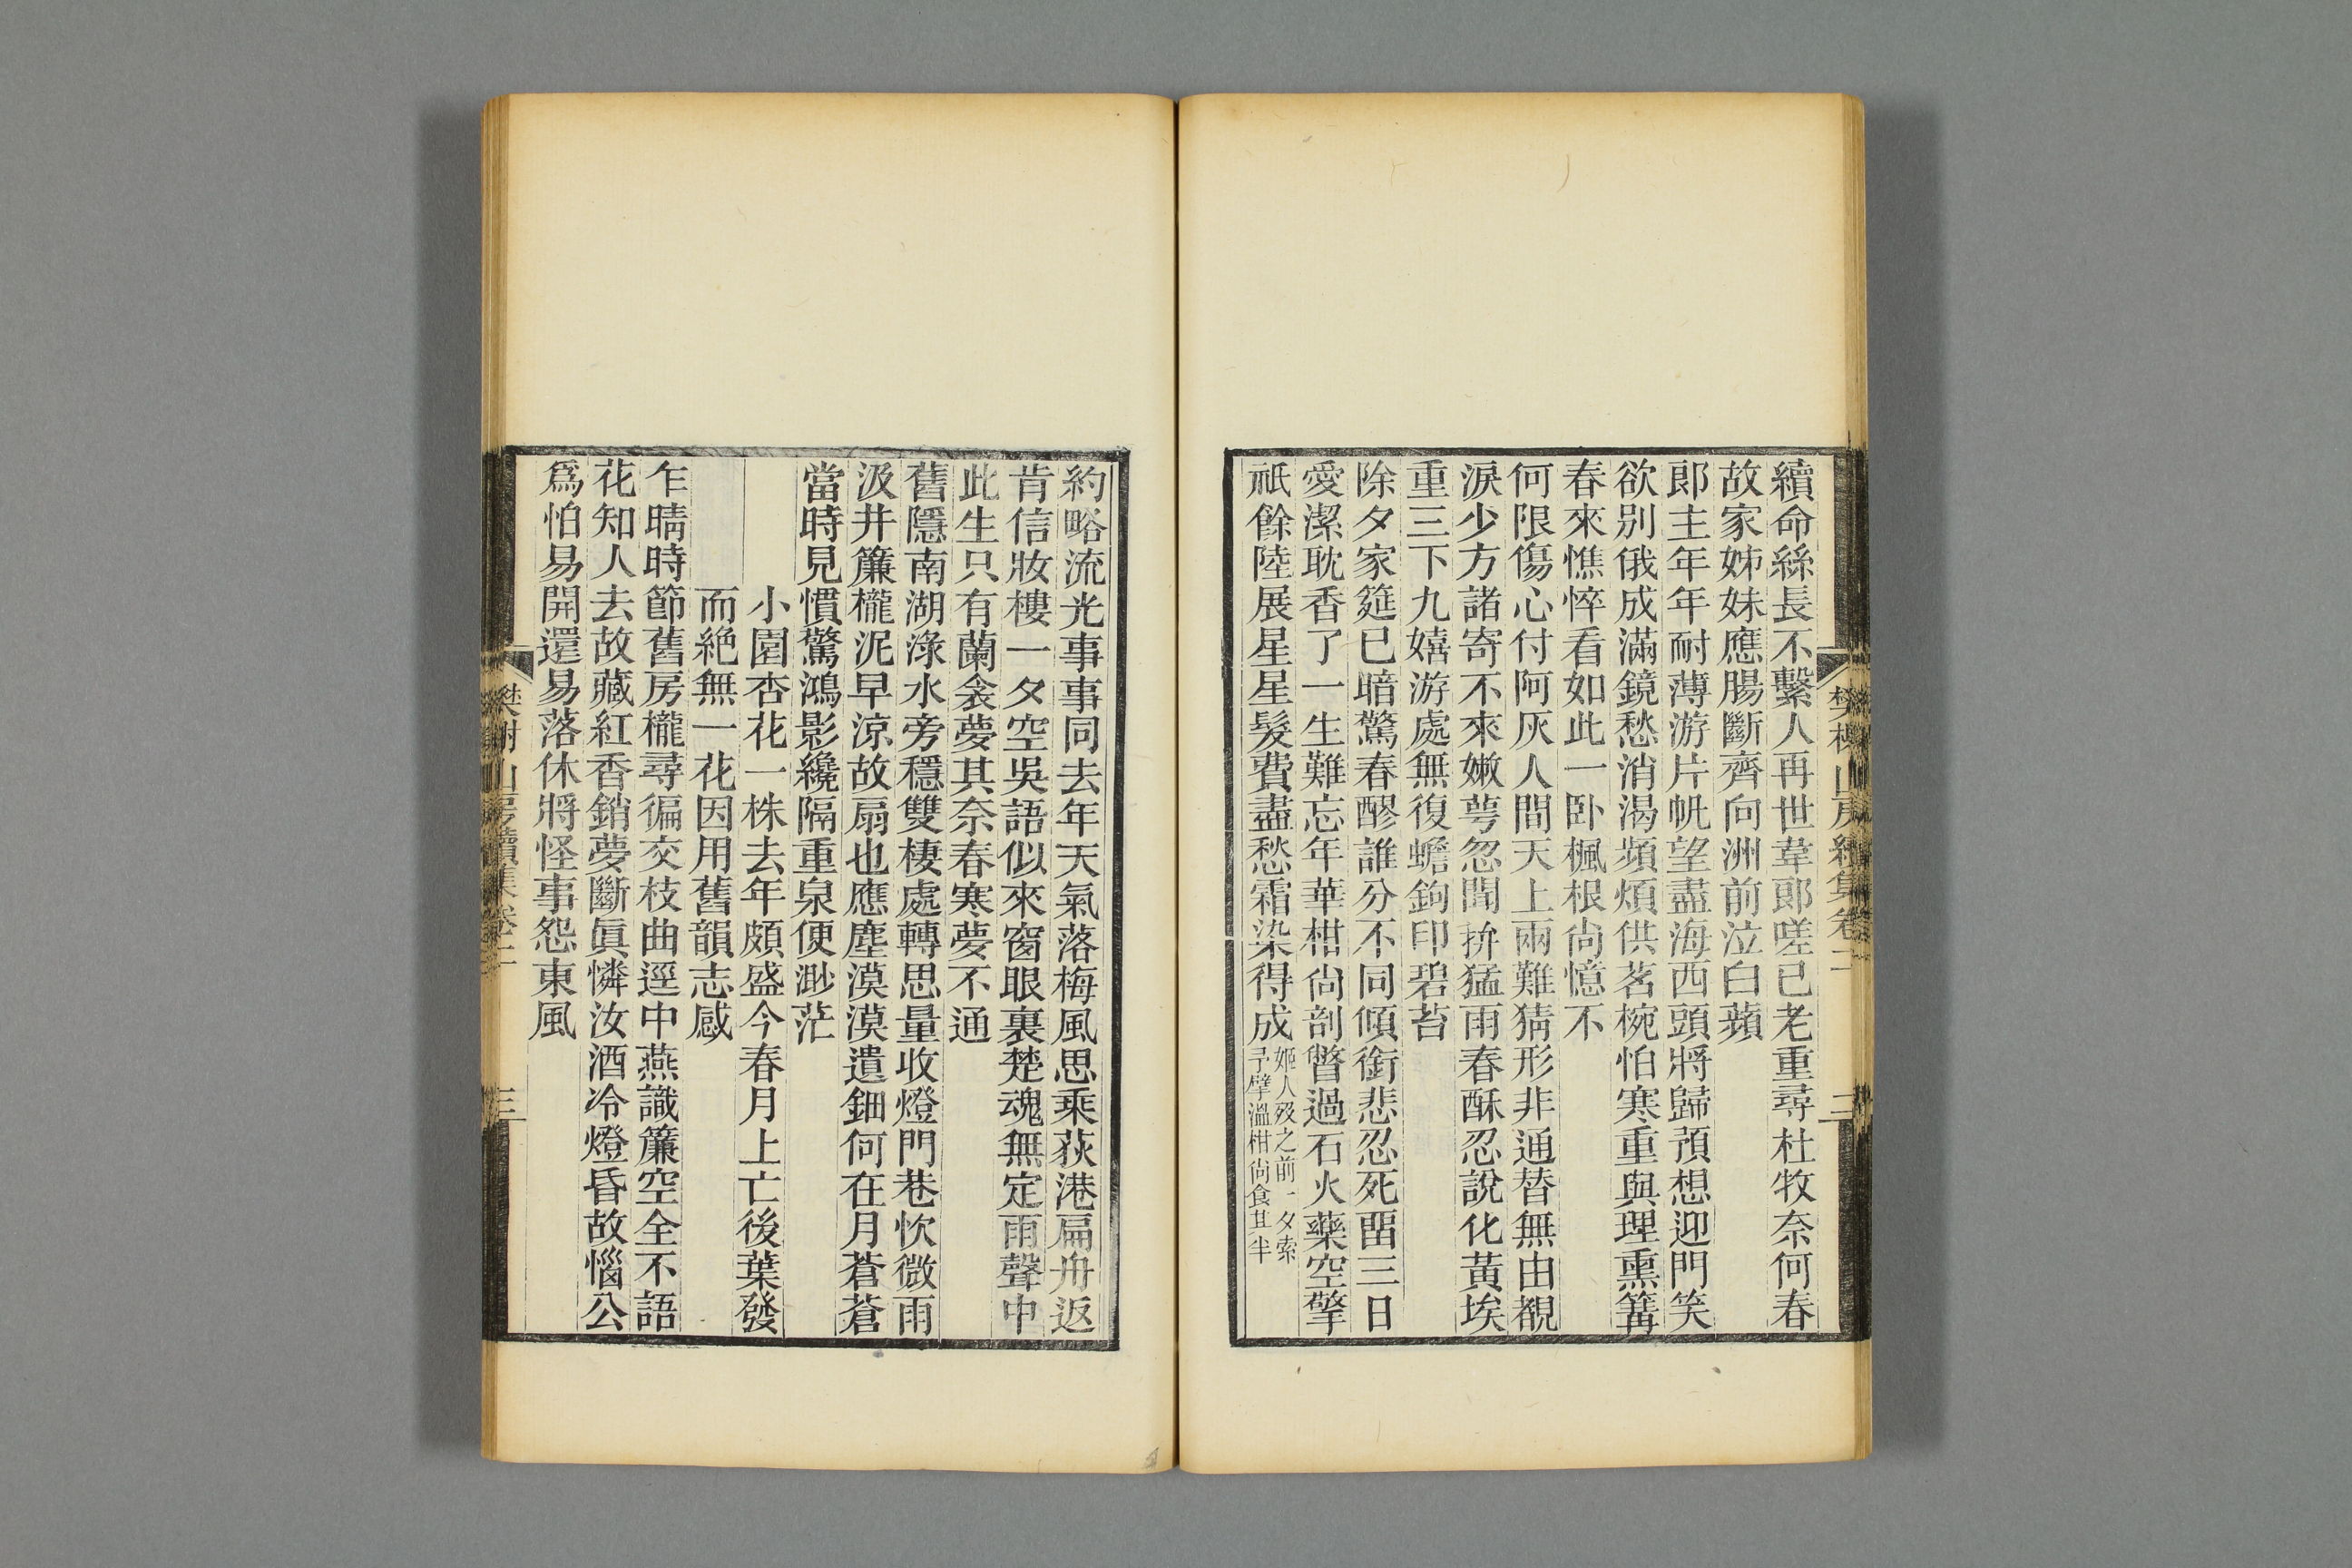 續命絲長不繫人再世韋郞嗟已老重尋杜牧奈何春
故家姊妹應腸斷齊向洲前泣白蘋
郞主年年耐薄游片帆望盡海西頭將歸預想迎門笑
欲別俄成滿鏡愁消渴頻煩供茗椀怕寒重與理熏篝
春來憔悴看如此一卧楓根尚憶不
何限傷心付阿灰人間天上兩難猜形非通替無由覩
淚少方諸寄不來嫩萼忽聞拚猛雨春酥忍說化黃埃
重三下九嬉游處無復蟾鉤印碧苔
除夕家筵已暗驚春醪誰分不同傾銜悲忍死畱三日
愛潔耽香了一生難忘年華柑尚剖瞥過石火藥空擎
祇餘陸展星星髮費盡愁霜染得成
姬人歿之前一夕索
予擘溫柑尚食其半
樊榭山房續集卷二
二
約略流光事事同去年天氣落梅風思乘荻港扁舟返
肯信妝樓一夕空吳語似來窗眼裏楚魂無定雨聲中
此生只有蘭衾夢其奈春寒夢不通
舊隱南湖淥水旁穩雙棲處轉思量收燈門巷忺微雨
汲井簾櫳泥早涼故扇也應塵漠漠遺鈿何在月蒼蒼
當時見慣驚鴻影纔隔重泉便渺茫
小園杏花一株去年頗盛今春月上亡後葉發
而絶無一花因用舊韻志感
乍晴時節舊房櫳尋徧交枝曲逕中燕識簾空全不語
花知人去故藏紅香銷夢斷眞憐汝酒冷燈昏故惱公
爲怕易開還易落休將怪事怨東風
樊榭山房續集卷二
三